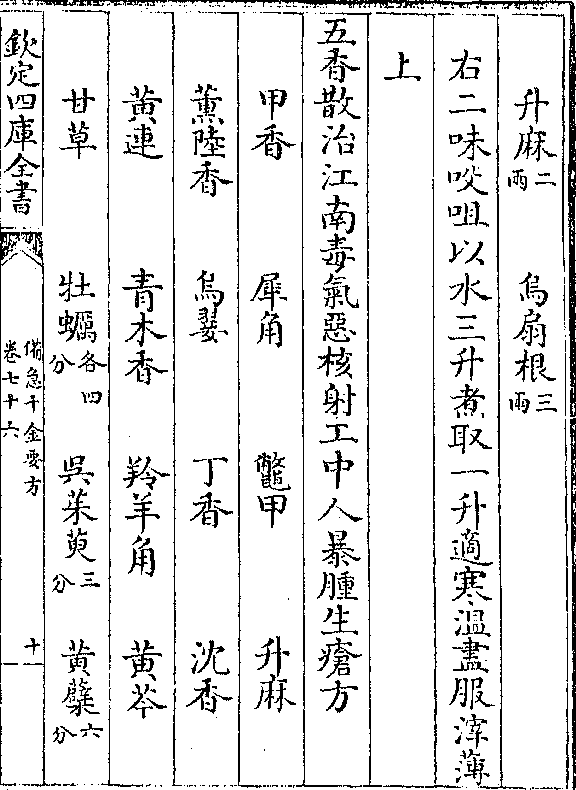 升麻二兩　烏扇根三兩
右二味㕮咀以水三升煮取一升適寒温盡服滓薄
上
五香散治江南毒氣惡核射工中人暴腫生瘡方
甲香　犀角　鼈甲　升麻
薰陸香　烏翣　丁香　沈香
黄連　青木香　羚羊角　黄芩
甘草　牡蠣各四分　吳茱萸三分　黄蘗六分
欽定四庫全書
備急千金要方
卷七十六
十